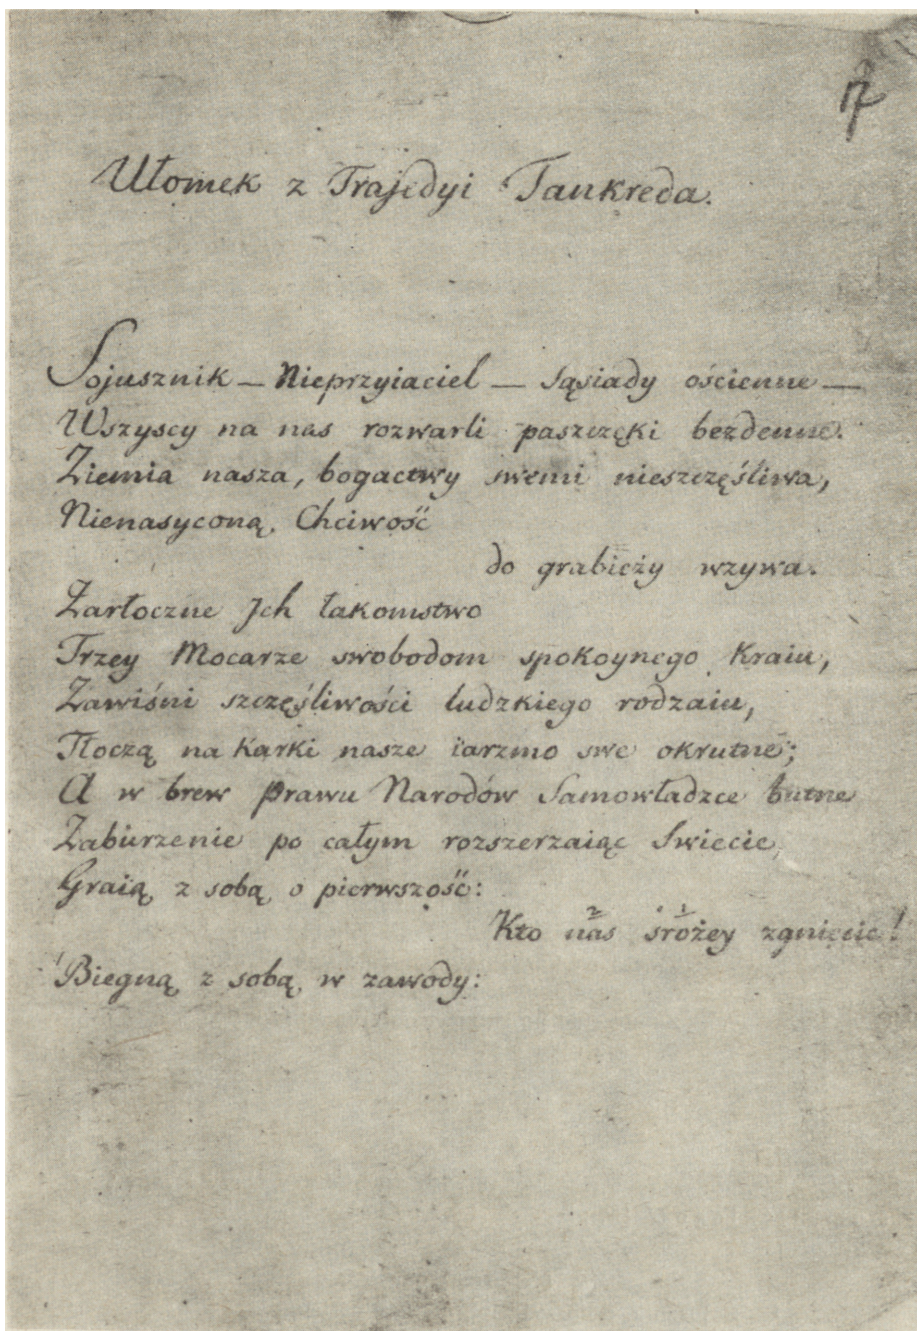 17
Ułomek z Trajedyi Tankreda.
Sojusznik — Nieprzyiaciel — sąsiady ościenne —
Wszyscy na nas rozwarli paszczęki bezdenne.
Ziemia nasza, bogactwy swemi nieszczęśliwa,
Nienasyconą Chciwość
do grabieży wzywa.
Żarłoczne Ich łakomstwo
Trzey Mocarze swobodom spokoynego Kraiu,
Zawiśni szczęśliwości ludzkiego rodzaiu,
Tłoczą na Karki nasze iarzmo swe okrutne;
A w brew prawu Narodów Samowładzce butne
Zaburzenie po całym rozszerzaiąc Swiecie,
Graią z sobą o pierwszość:
Kto nas śrożey zgniecie!
Biegną z sobą w zawody: